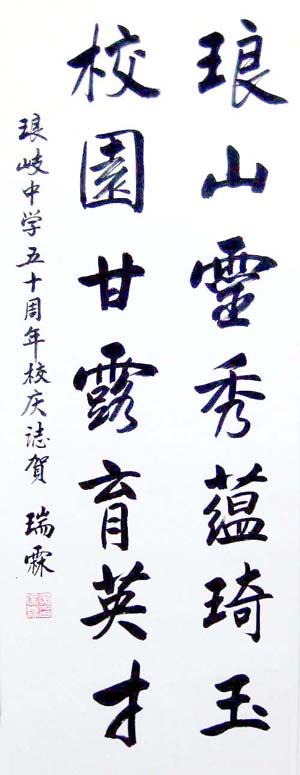 琅山靈秀蘊琦玉
校園甘露育英才
琅岐中学五十周年校庆誌賀 瑞霖